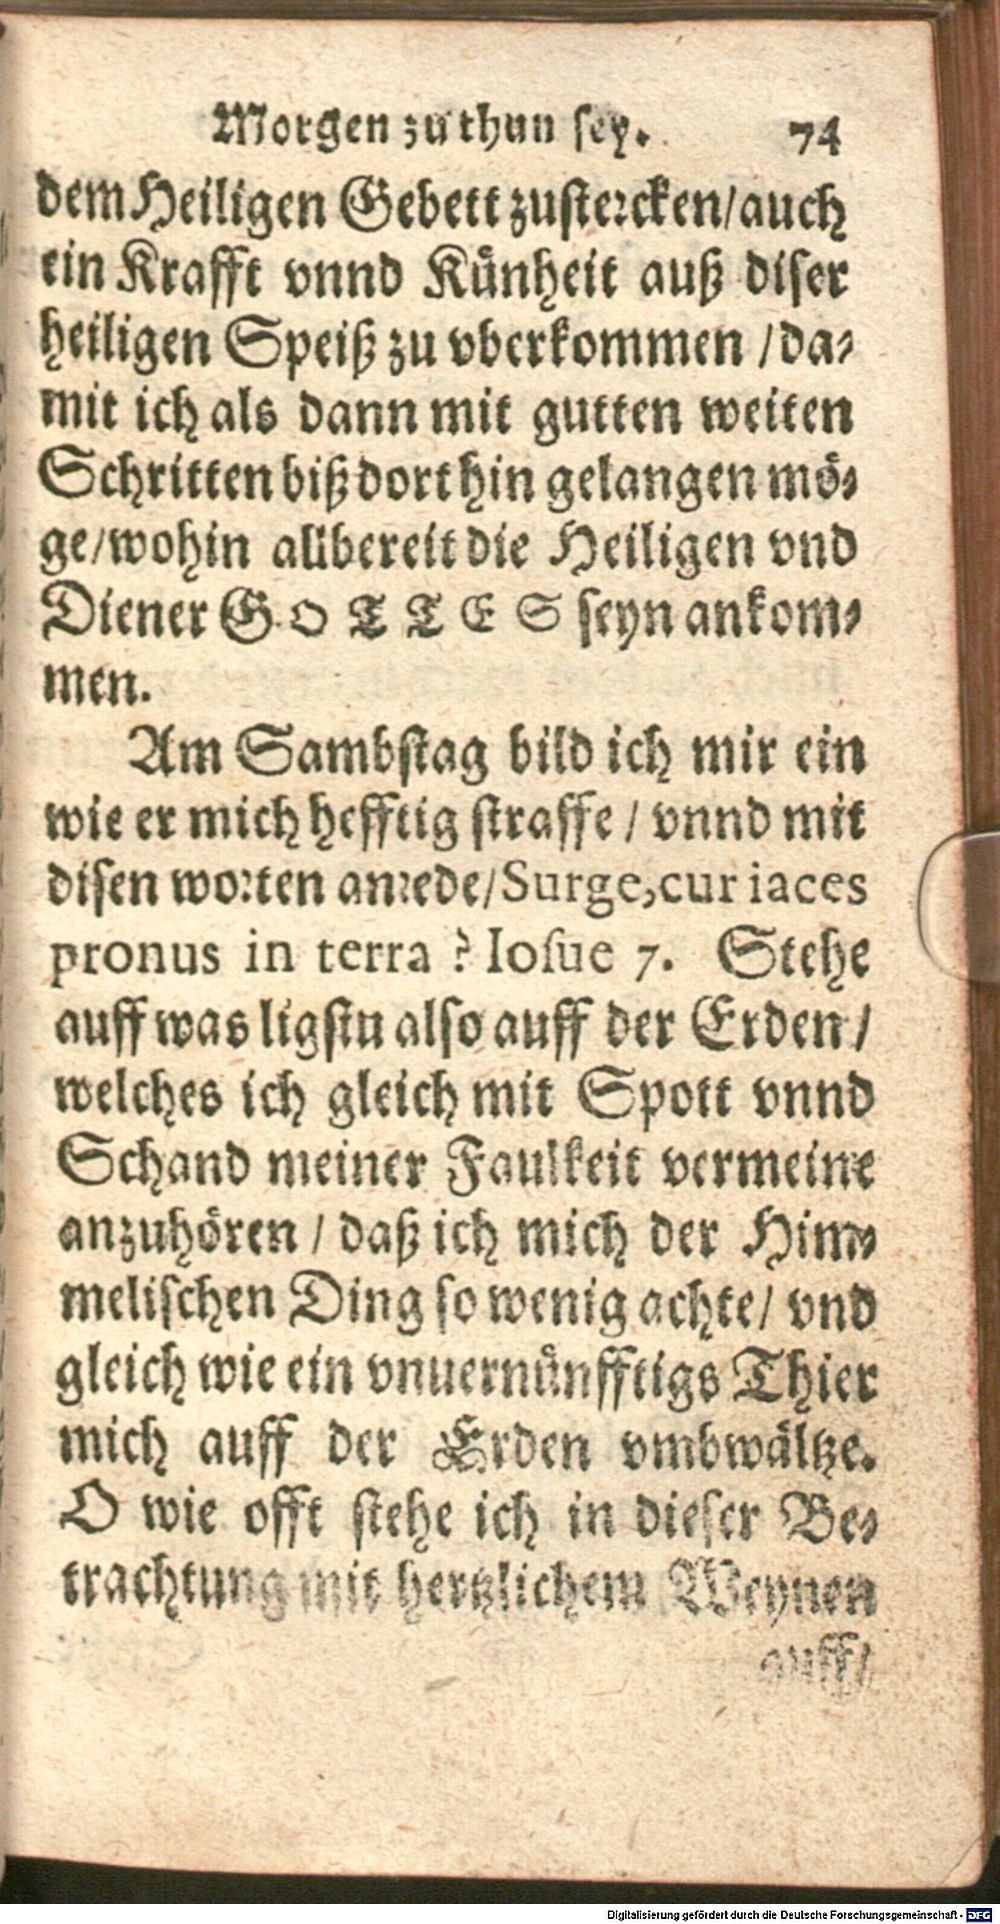 Morgen zu thun sey. 74
dem Heiligen Gebett zustercken/auch
ein Krafft vnnd Künheit auß diser
heiligen Speiß zu vberkommen /da-
mit ich als dann mit gutten weiten
Schritten biß dorthin gelangen mö-
ge/wohin allbereit die Heiligen vnd
Diener GOTTES seyn ankom-
men.
Am Sambstag bild ich mir ein
wie er mich hefftig straffe / vnnd mit
disen worten anrede/Surge,cur iaces
pronus in terra ? Iosue 7. Stehe
auff was ligstu also auff der Erden/
welches ich gleich mit Spott vnnd
Schand meiner Faulkeit vermeine
anzuhören / daß ich mich der Him-
melischen Ding so wenig achte/ vnd
gleich wie ein vnuernünfftigs Thier
mich auff der Erden vmbwältze.
O wie offt stehe ich in dieser Be-
trachtung mit hertzlichem Weynen
auff/
Digitalisierung gefördert durch die Deutsche Forschungsgemeinschaft - DFG